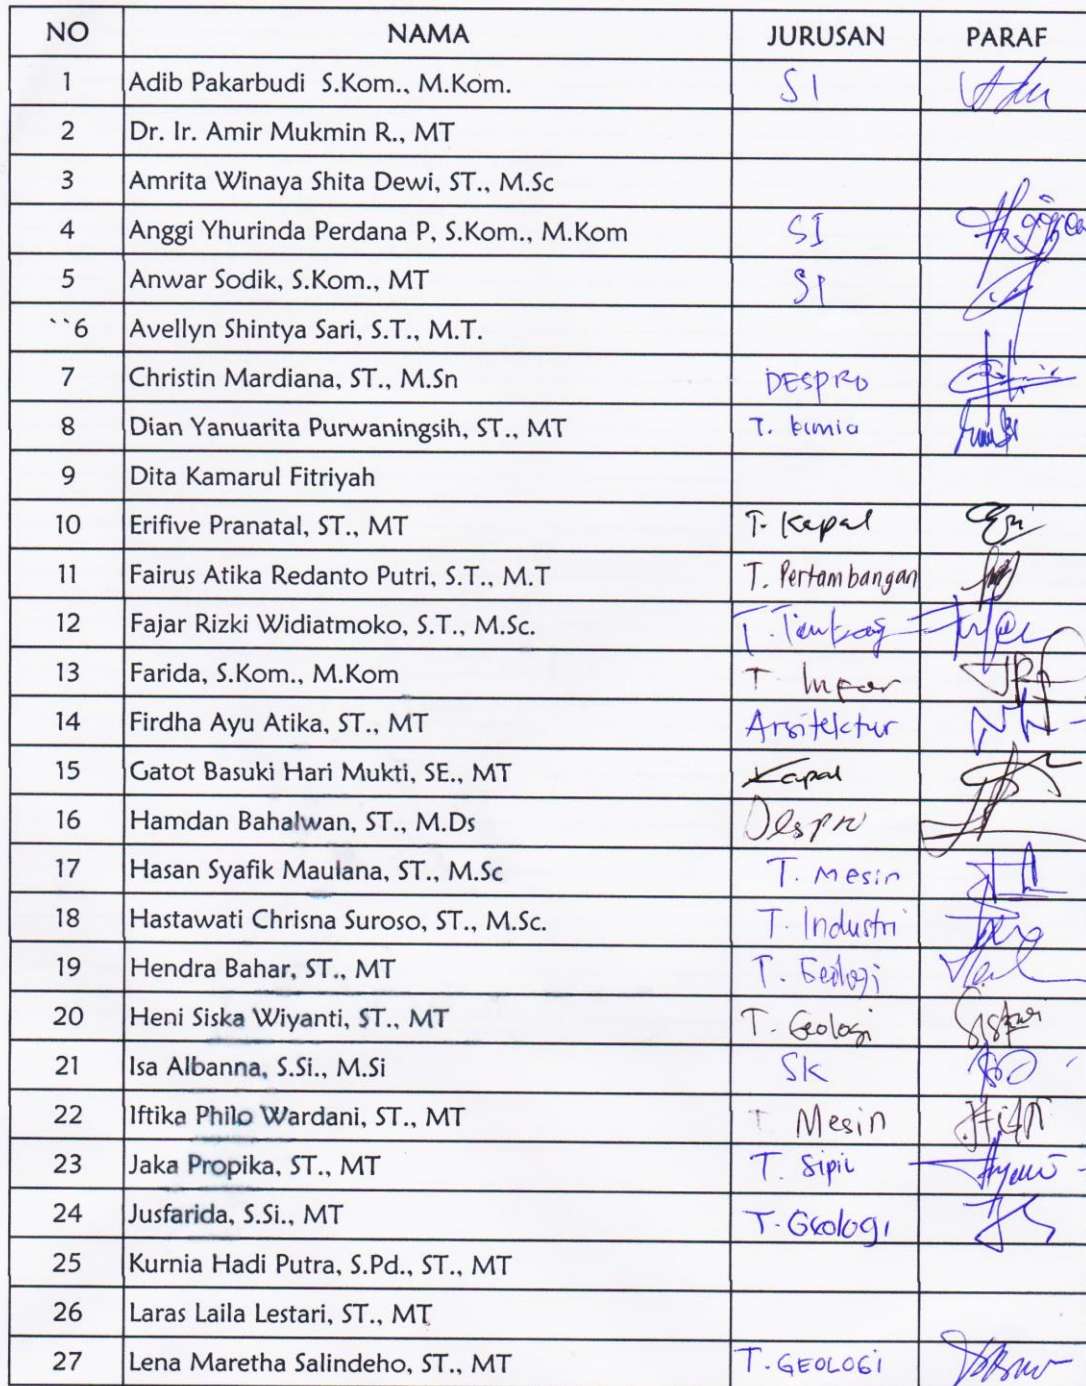 NO NAMA JURUSAN PARAF
1 Adib Pakarbudi S.Kom., M.Kom. SI
2 Dr. Ir. Amir Mukmin R., MT
3 Amrita Winaya Shita Dewi, ST., M.Sc
4 Anggi Yhurinda Perdana P, S.Kom., M.Kom SI
5 Anwar Sodik, S.Kom., MT SI
``6 Avellyn Shintya Sari, S.T., M.T.
7 Christin Mardiana, ST., M.Sn DESPRO
8 Dian Yanuarita Purwaningsih, ST., MT T. kimia
9 Dita Kamarul Fitriyah
10 Erifive Pranatal, ST., MT T. Kapal
11 Fairus Atika Redanto Putri, S.T., M.T T. Pertambangan
12 Fajar Rizki Widiatmoko, S.T., M.Sc. T.
13 Farida, S.Kom., M.Kom T Infor
14 Firdha Ayu Atika, ST., MT Arsitektur
15 Gatot Basuki Hari Mukti, SE., MT Kapal
16 Hamdan Bahalwan, ST., M.Ds Despro
17 Hasan Syafik Maulana, ST., M.Sc T. Mesin
18 Hastawati Chrisna Suroso, ST., M.Sc. T. Industri
19 Hendra Bahar, ST., MT T. Geologi
20 Heni Siska Wiyanti, ST., MT T. Geologi
21 Isa Albanna, S.Si., M.Si SK
22 Iftika Philo Wardani, ST., MT T Mesin
23 Jaka Propika, ST., MT T. Sipil
24 Jusfarida, S.Si., MT T. Geologi
25 Kurnia Hadi Putra, S.Pd., ST., MT
26 Laras Laila Lestari, ST., MT
27 Lena Maretha Salindeho, ST., MT T. GEOLOGI